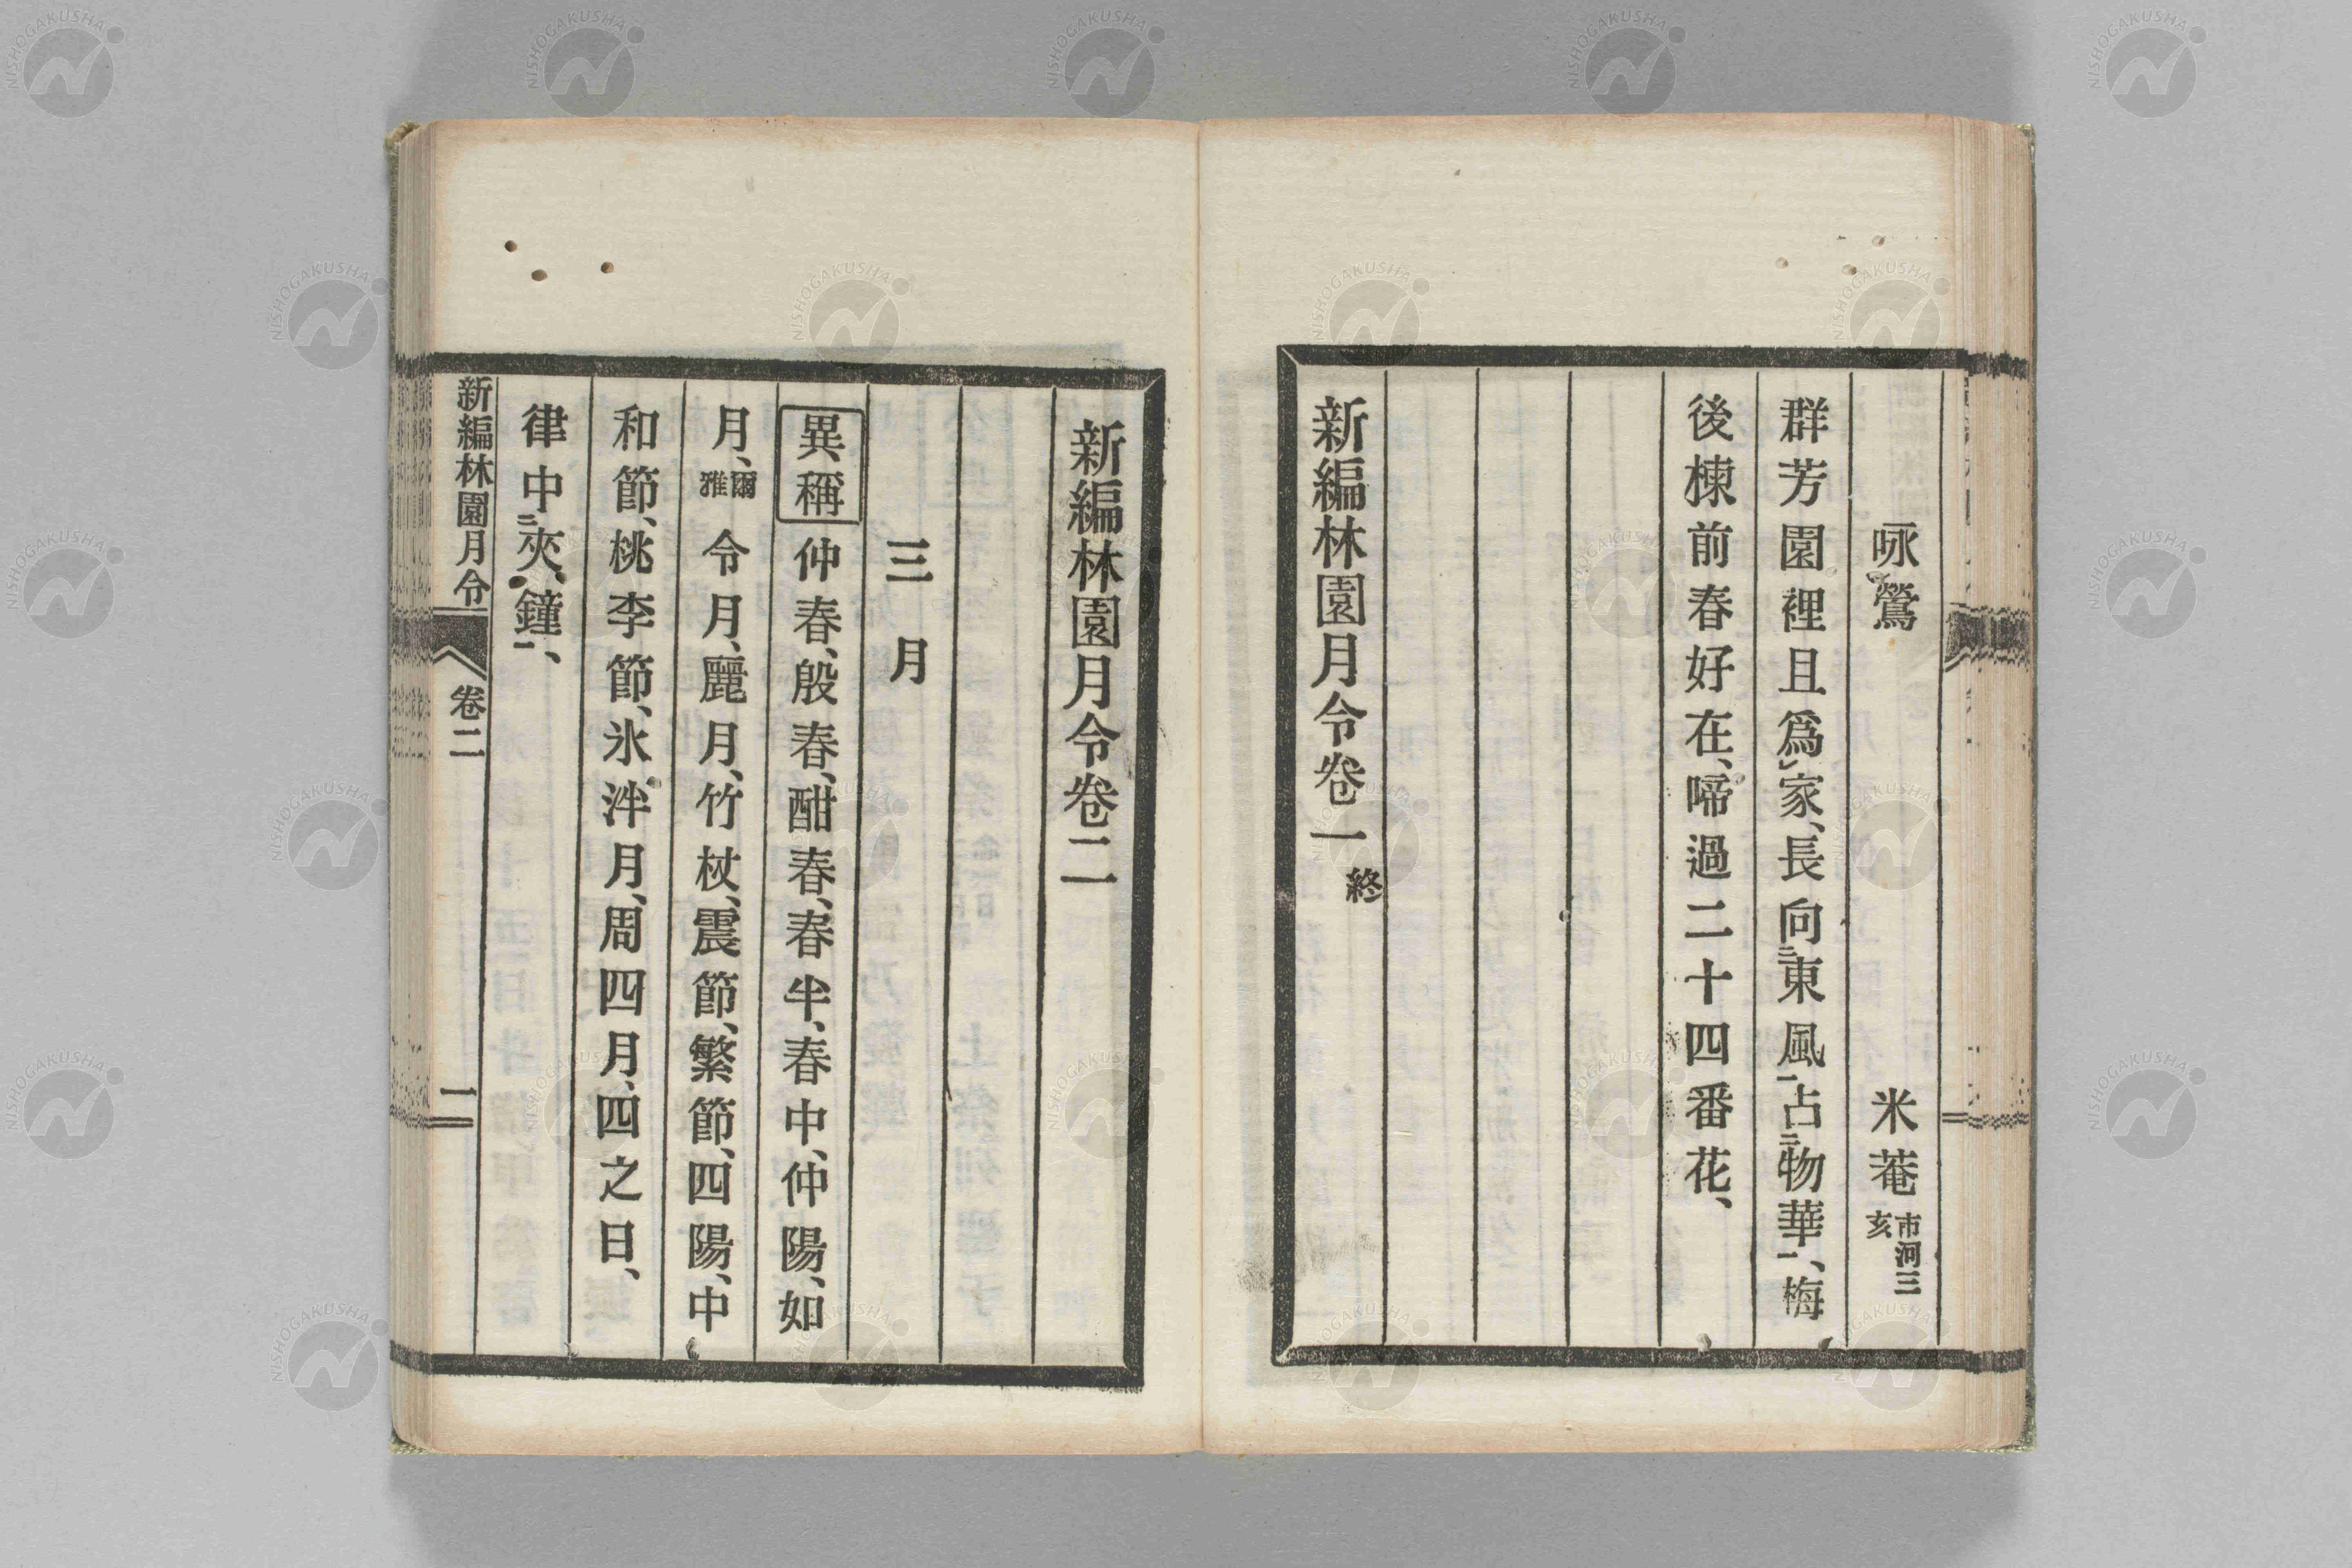 咏鶯 米菴 市河三亥
群芳園裡且爲㆑家、長向㆓東風㆒占㆓物華㆒、梅
後楝前春好在、啼過二十四番花、
新編林園月令卷一 終
新編林園月令卷二
三月
異稱 仲春、殷春、酣春、春半、春中、仲陽、如
月、爾雅 令月、麗月、竹杖、震節、繁節、四陽、中
和節、桃李節、氷泮月、周四月、四之日、
律中㆓夾鐘㆒、
新編林園月令 卷二 一
NISHOGAKUSHA